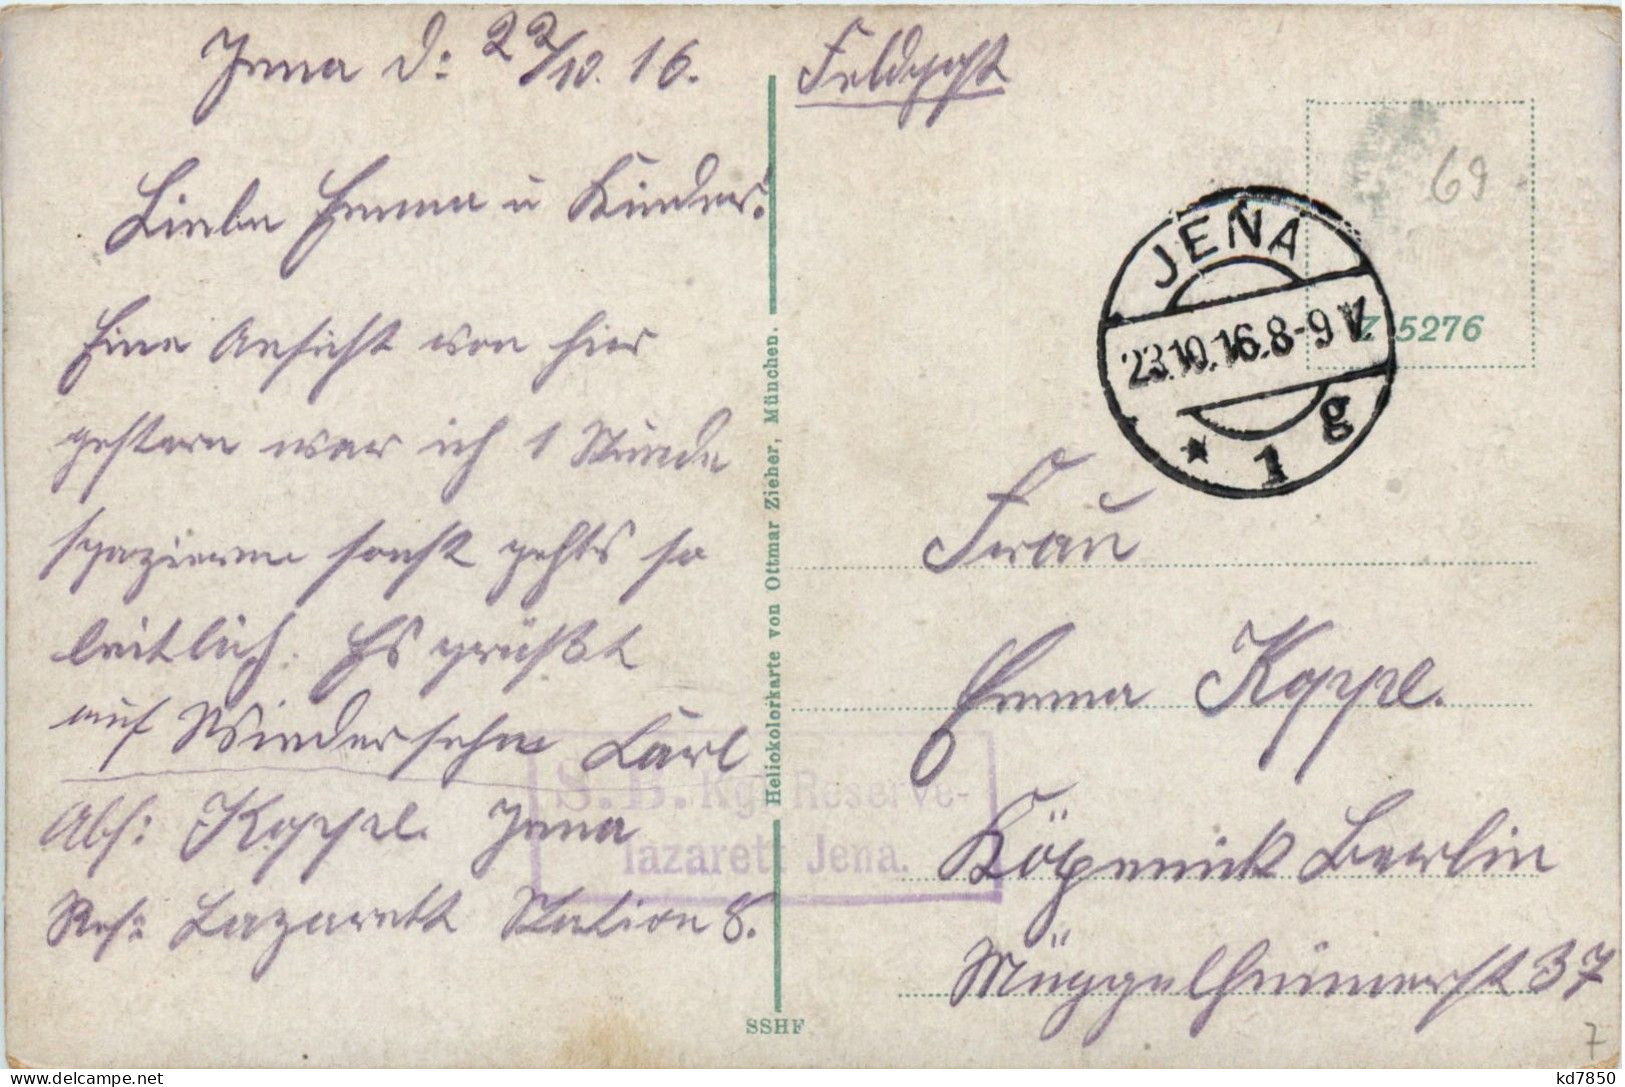 Jena d: 22/10. 16.
Liebe Emma u Kinder!
Eine Ansicht von hier
gestern war ich 1 Stunde
spazieren sonst gehts so
leidlich. Es grüßt
auf Wiedersehn Karl
Abs: Koppel. Jena
Res: Lazarett Station 8.
Heliokolorkarte von Ottmar Zieher, München.
SSHF
Feldpost
69
JENA
23.10.16.8-9V.
* 1 g
Z 5276
Frau
Emma Koppel.
Köpenick Berlin
Müggelheimerst 37
S. B. Kgl Reserve-
lazarett Jena.
7
kd7850